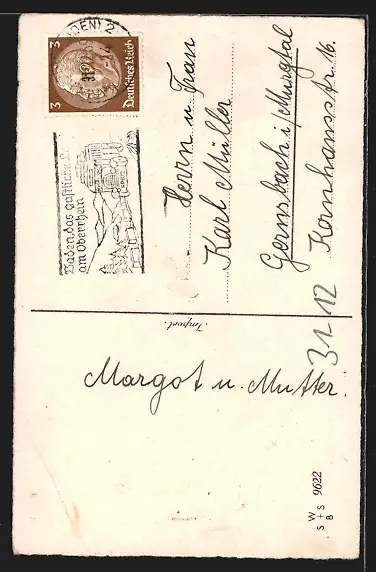 Margot u. Mutter.
Import.
W
S + S 9622
B
3
3
Deutsches Reich
2
Baden, das gastliche
am Oberrhein
Herrn u Frau
Karl Müller
Gernsbach i/Murgtal
Kornhausstr. 16.
31 12